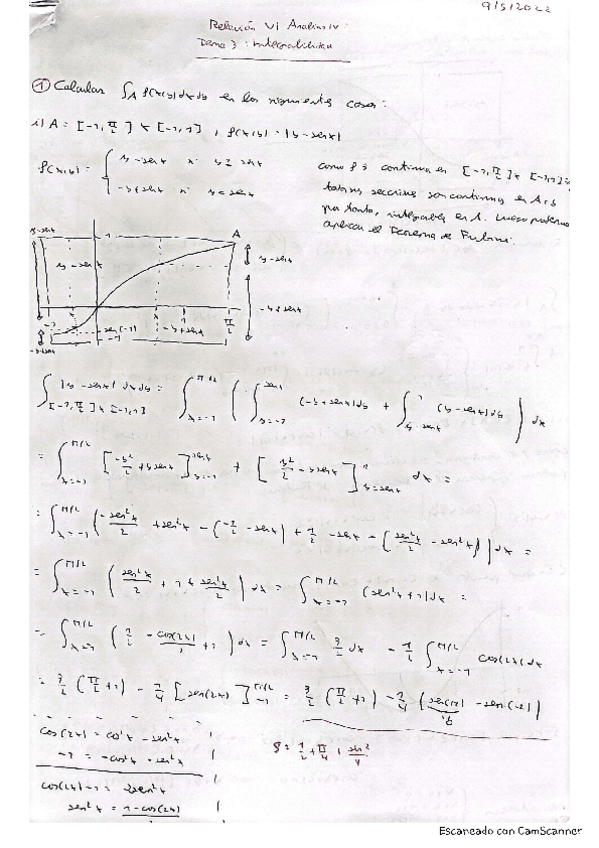 9/5/2022
Relación VI Análisis IV
Tema 3: integrabilidad
① Calcular ∫_A f(x,y) dx dy en los siguientes casos:
i) A = [-1, π/2] × [-1, 1], f(x,y) = |y - sen x|
f(x,y) = { y - sen x si y ≥ sen x
-y + sen x si y < sen x
como f es continua en [-1, π/2] × [-1, 1],
todas sus secciones son continuas en A, y
por tanto, integrables en A. Luego podemos
aplicar el Teorema de Fubini.
y - sen x
1
A
y - sen x
y - sen x
-y + sen x
-1
x
sen(-1)
-1
x
1
-y + sen x
π/2
-y + sen x
∫_{[-1, π/2] × [-1, 1]} |y - sen x| dx dy = ∫_{x=-1}^{π/2} ( ∫_{y=-1}^{sen x} (-y + sen x) dy + ∫_{y=sen x}^{1} (y - sen x) dy ) dx
= ∫_{x=-1}^{π/2} [ -y²/2 + y sen x ]_{y=-1}^{sen x} + [ y²/2 - y sen x ]_{y=sen x}^{1} dx =
= ∫_{x=-1}^{π/2} ( -sen²x/2 + sen²x - (-1/2 - sen x) + 1/2 - sen x - ( sen²x/2 - sen²x ) ) dx =
= ∫_{x=-1}^{π/2} ( sen²x/2 + 1 + sen²x/2 ) dx = ∫_{x=-1}^{π/2} (sen²x + 1) dx =
= ∫_{x=-1}^{π/2} ( 1/2 - cos(2x)/2 + 1 ) dx = ∫_{x=-1}^{π/2} 3/2 dx - 1/2 ∫_{x=-1}^{π/2} cos(2x) dx
= 3/2 (π/2 + 1) - 1/4 [ sen(2x) ]_{-1}^{π/2} = 3/2 (π/2 + 1) - 1/4 ( sen(π) - sen(-2) )
cos(2x) = cos²x - sen²x
-1 = -cos²x - sen²x
cos(2x) - 1 = -2sen²x
sen²x = 1 - cos(2x)
Escaneado con CamScanner